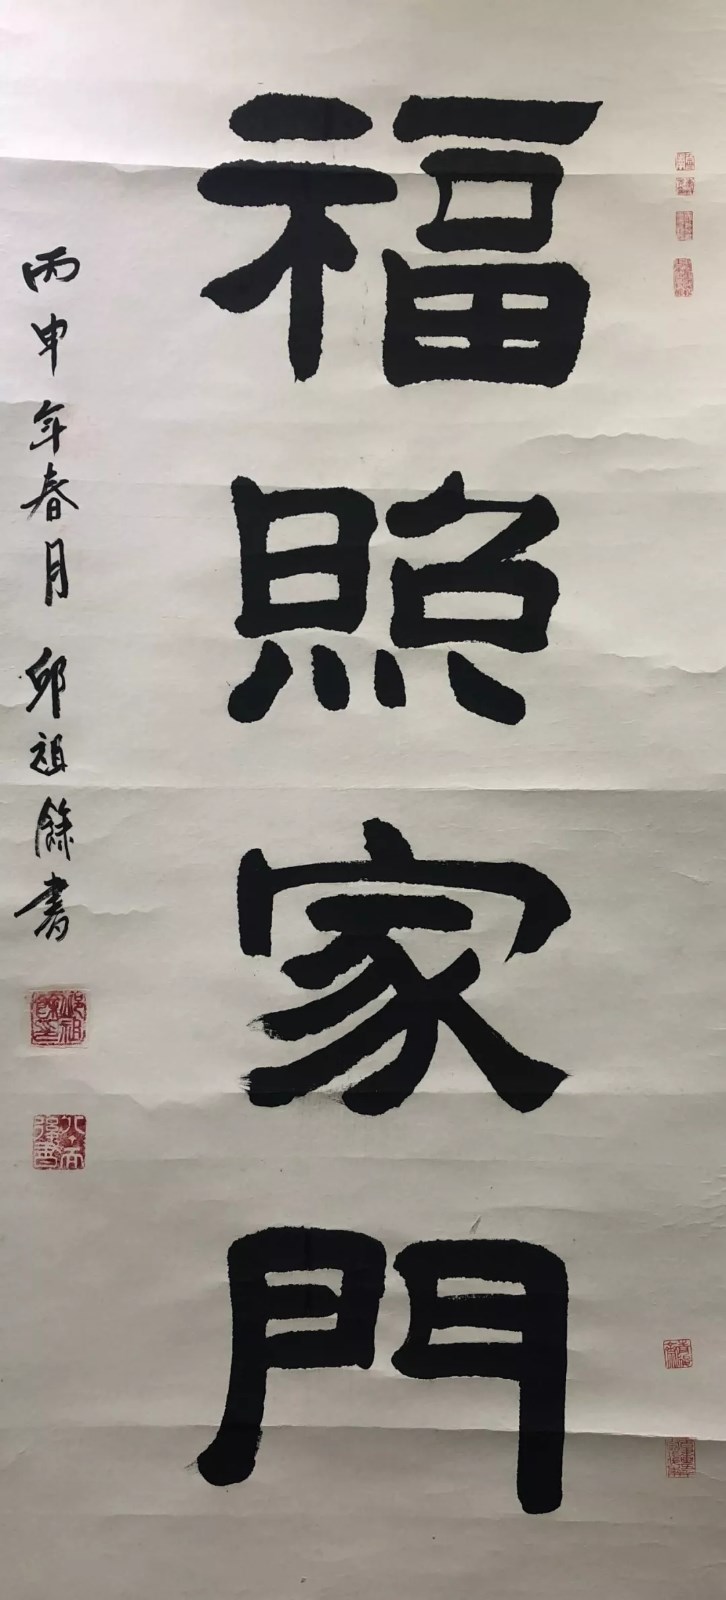 福照家門
丙申年春月 邱祖餘書